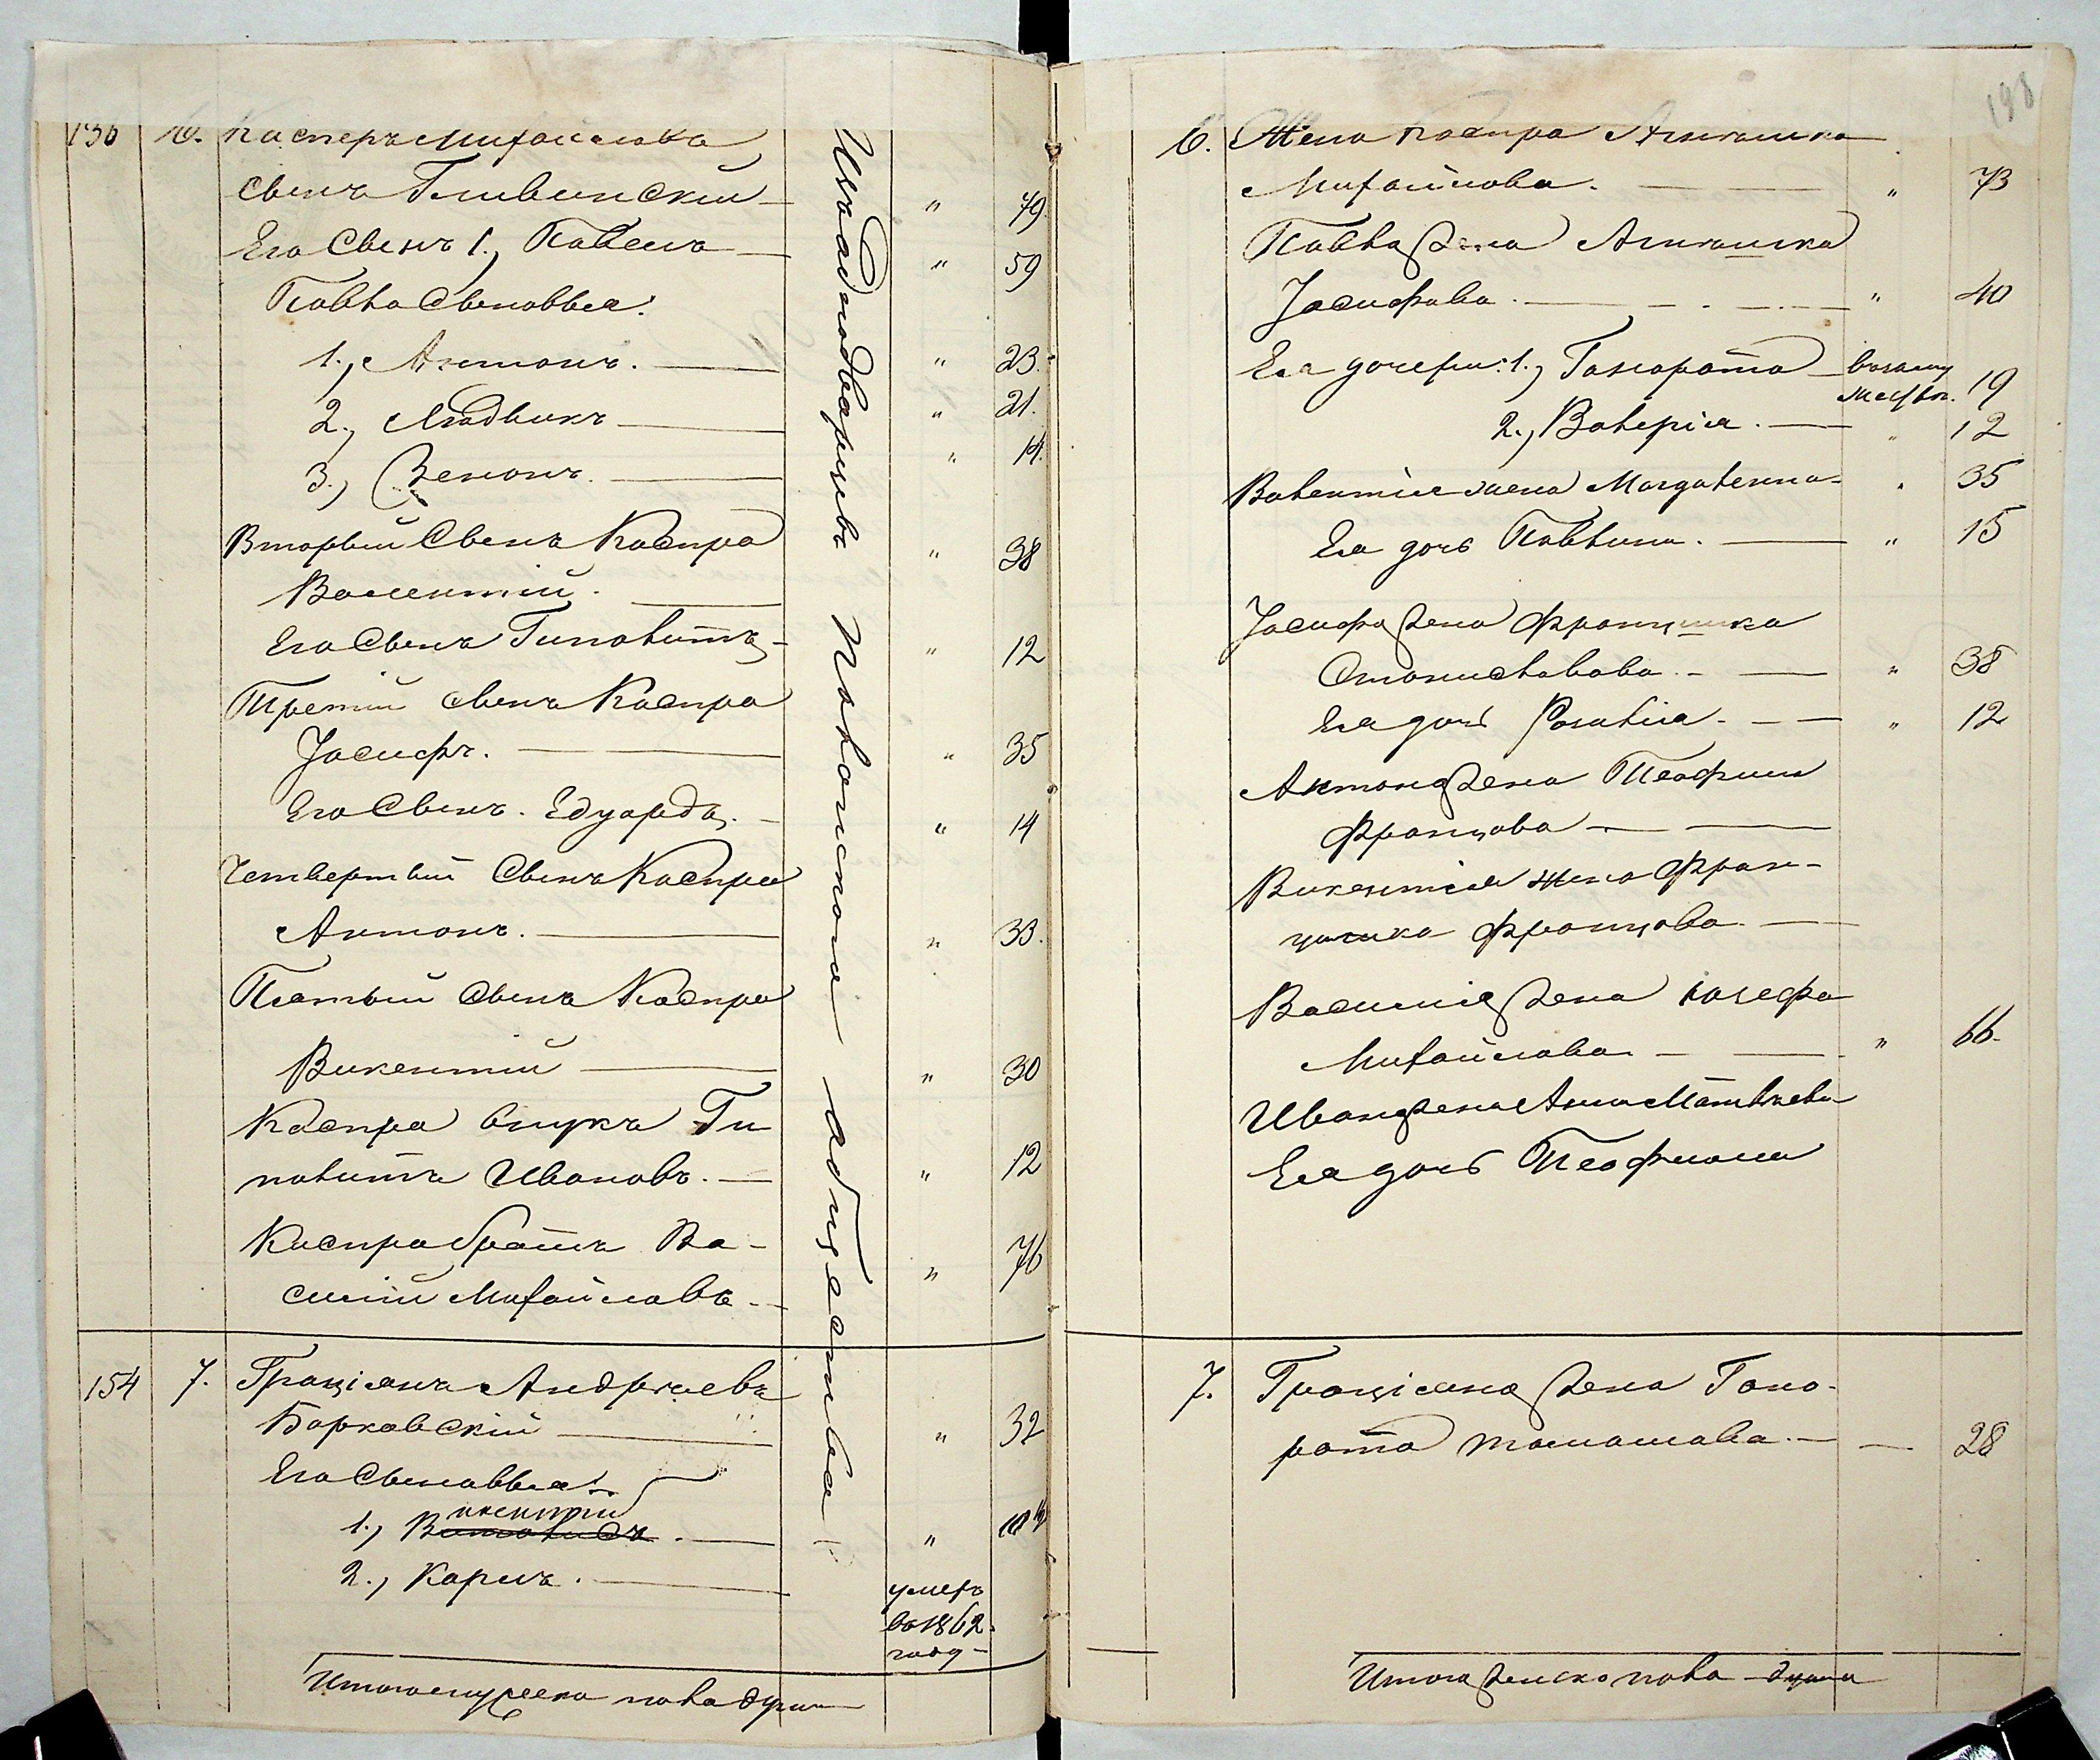 136 6. Касперъ Михайловъ
сынъ Гливинскій " 79
Его Сынъ 1., Павелъ " 59
Павла Сыновья:
1., Антонъ. " 23.
2., Людвикъ " 21.
3., Зенонъ. " 14.
Вторый Сынъ Каспра
Валентій. " 38
Его Сынъ Гиполитъ " 12
Третій сынъ Каспра
Іосифъ. " 35
Его Сынъ. Едуардъ. " 14
Четвертый Сынъ Каспра
Антонъ. " 33.
Пятый Сынъ Каспра
Викентій " 30
Каспра внукъ Ги
политъ Ивановъ. " 12
Каспра братъ Ва-
силій Михайловъ. " 76
Изъ однодворцевъ Поволжской общества
154 7. Граціянъ Андреевъ
Борковскій " 32
Его Сыновья:
икентій
1., Витольдъ. "
2., Карлъ. умеръ
въ 1862
году
Итого мужеска пола душъ
198
6. Жена Каспра Агнешка
Михайлова. " 73
Павла жена Агнешка
Іосифова. " 40
Ея дочери: 1., Гонората взамужество. 19
2., Валерія. " 12
Валентія жена Магдалена " 35
Ея дочь Павлина. " 15
Іосифа жена Францишка
Станиславова. " 38
Ея дочь Розалія. " 12
Антона жена Теофиля
Францова
Викентія жена Фран-
цишка Францова.
Василія жена Іозефа
Михайлова " 66.
Ивана жена Анна Матвѣева
Ея дочь Теофиля
7. Граціяна жена Гоно-
рата Томашова. 28
Итого женско пола душъ